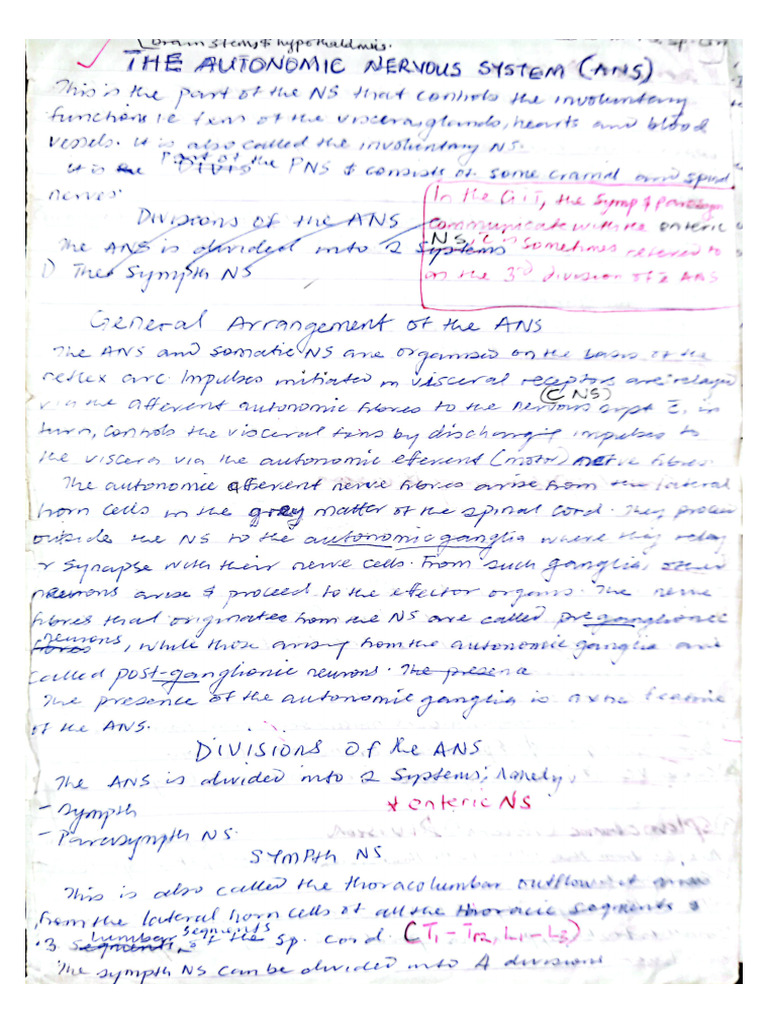 brain stems & hypothalamus.
THE AUTONOMIC NERVOUS SYSTEM (ANS)
This is the part of the NS that controls the involuntary
functions ie fxns of the viscera, glands, hearts and blood
vessels. It is also called the involuntary NS.
It is Part of the PNS & consists of some cranial and spinal
nerves.
In the GIT, the Symp & Parasym
communicate with the enteric
NS, c̄ is sometimes refered to
as the 3rd division of z ANS
Divisions of the ANS
The ANS is divided into 2 Systems
1) The Sympth NS
General Arrangement of the ANS
The ANS and somatic NS are organised on the basis of the
reflex arc. Impulses initiated in visceral receptors are relayed
(CNS)
via the afferent autonomic fibres to the nervous syst c̄, in
turn, controls the visceral fxns by discharging impulses to
the viscera via the autonomic eferent (motor) nerve fibres.
The autonomic efferent nerve fibres arise from the lateral
horn cells in the grey matter of the spinal cord. They proceed
outside the NS to the autonomic ganglia where they relay
or synapse with their nerve cells. From such ganglia, other
neurons arise & proceed to the effector organs. The nerve
fibres that originate from the NS are called preganglionic
neurons, while those arising from the autonomic ganglia are
called post-ganglionic neurons. The presena
The presence of the autonomic ganglia is a xtic feature
of the ANS.
DIVISIONS Of the ANS
The ANS is divided into 2 Systems; namely,
- Sympth
+ enteric NS
- Parasympth NS.
SYMPth NS
This is also called the thoracolumbar outflow. It arises
from the lateral horn cells of all the thoracic segments &
3 Lumbar segments of the sp. cord. (T1 – T12, L1 – L3)
The sympth NS can be divided into 4 divisions